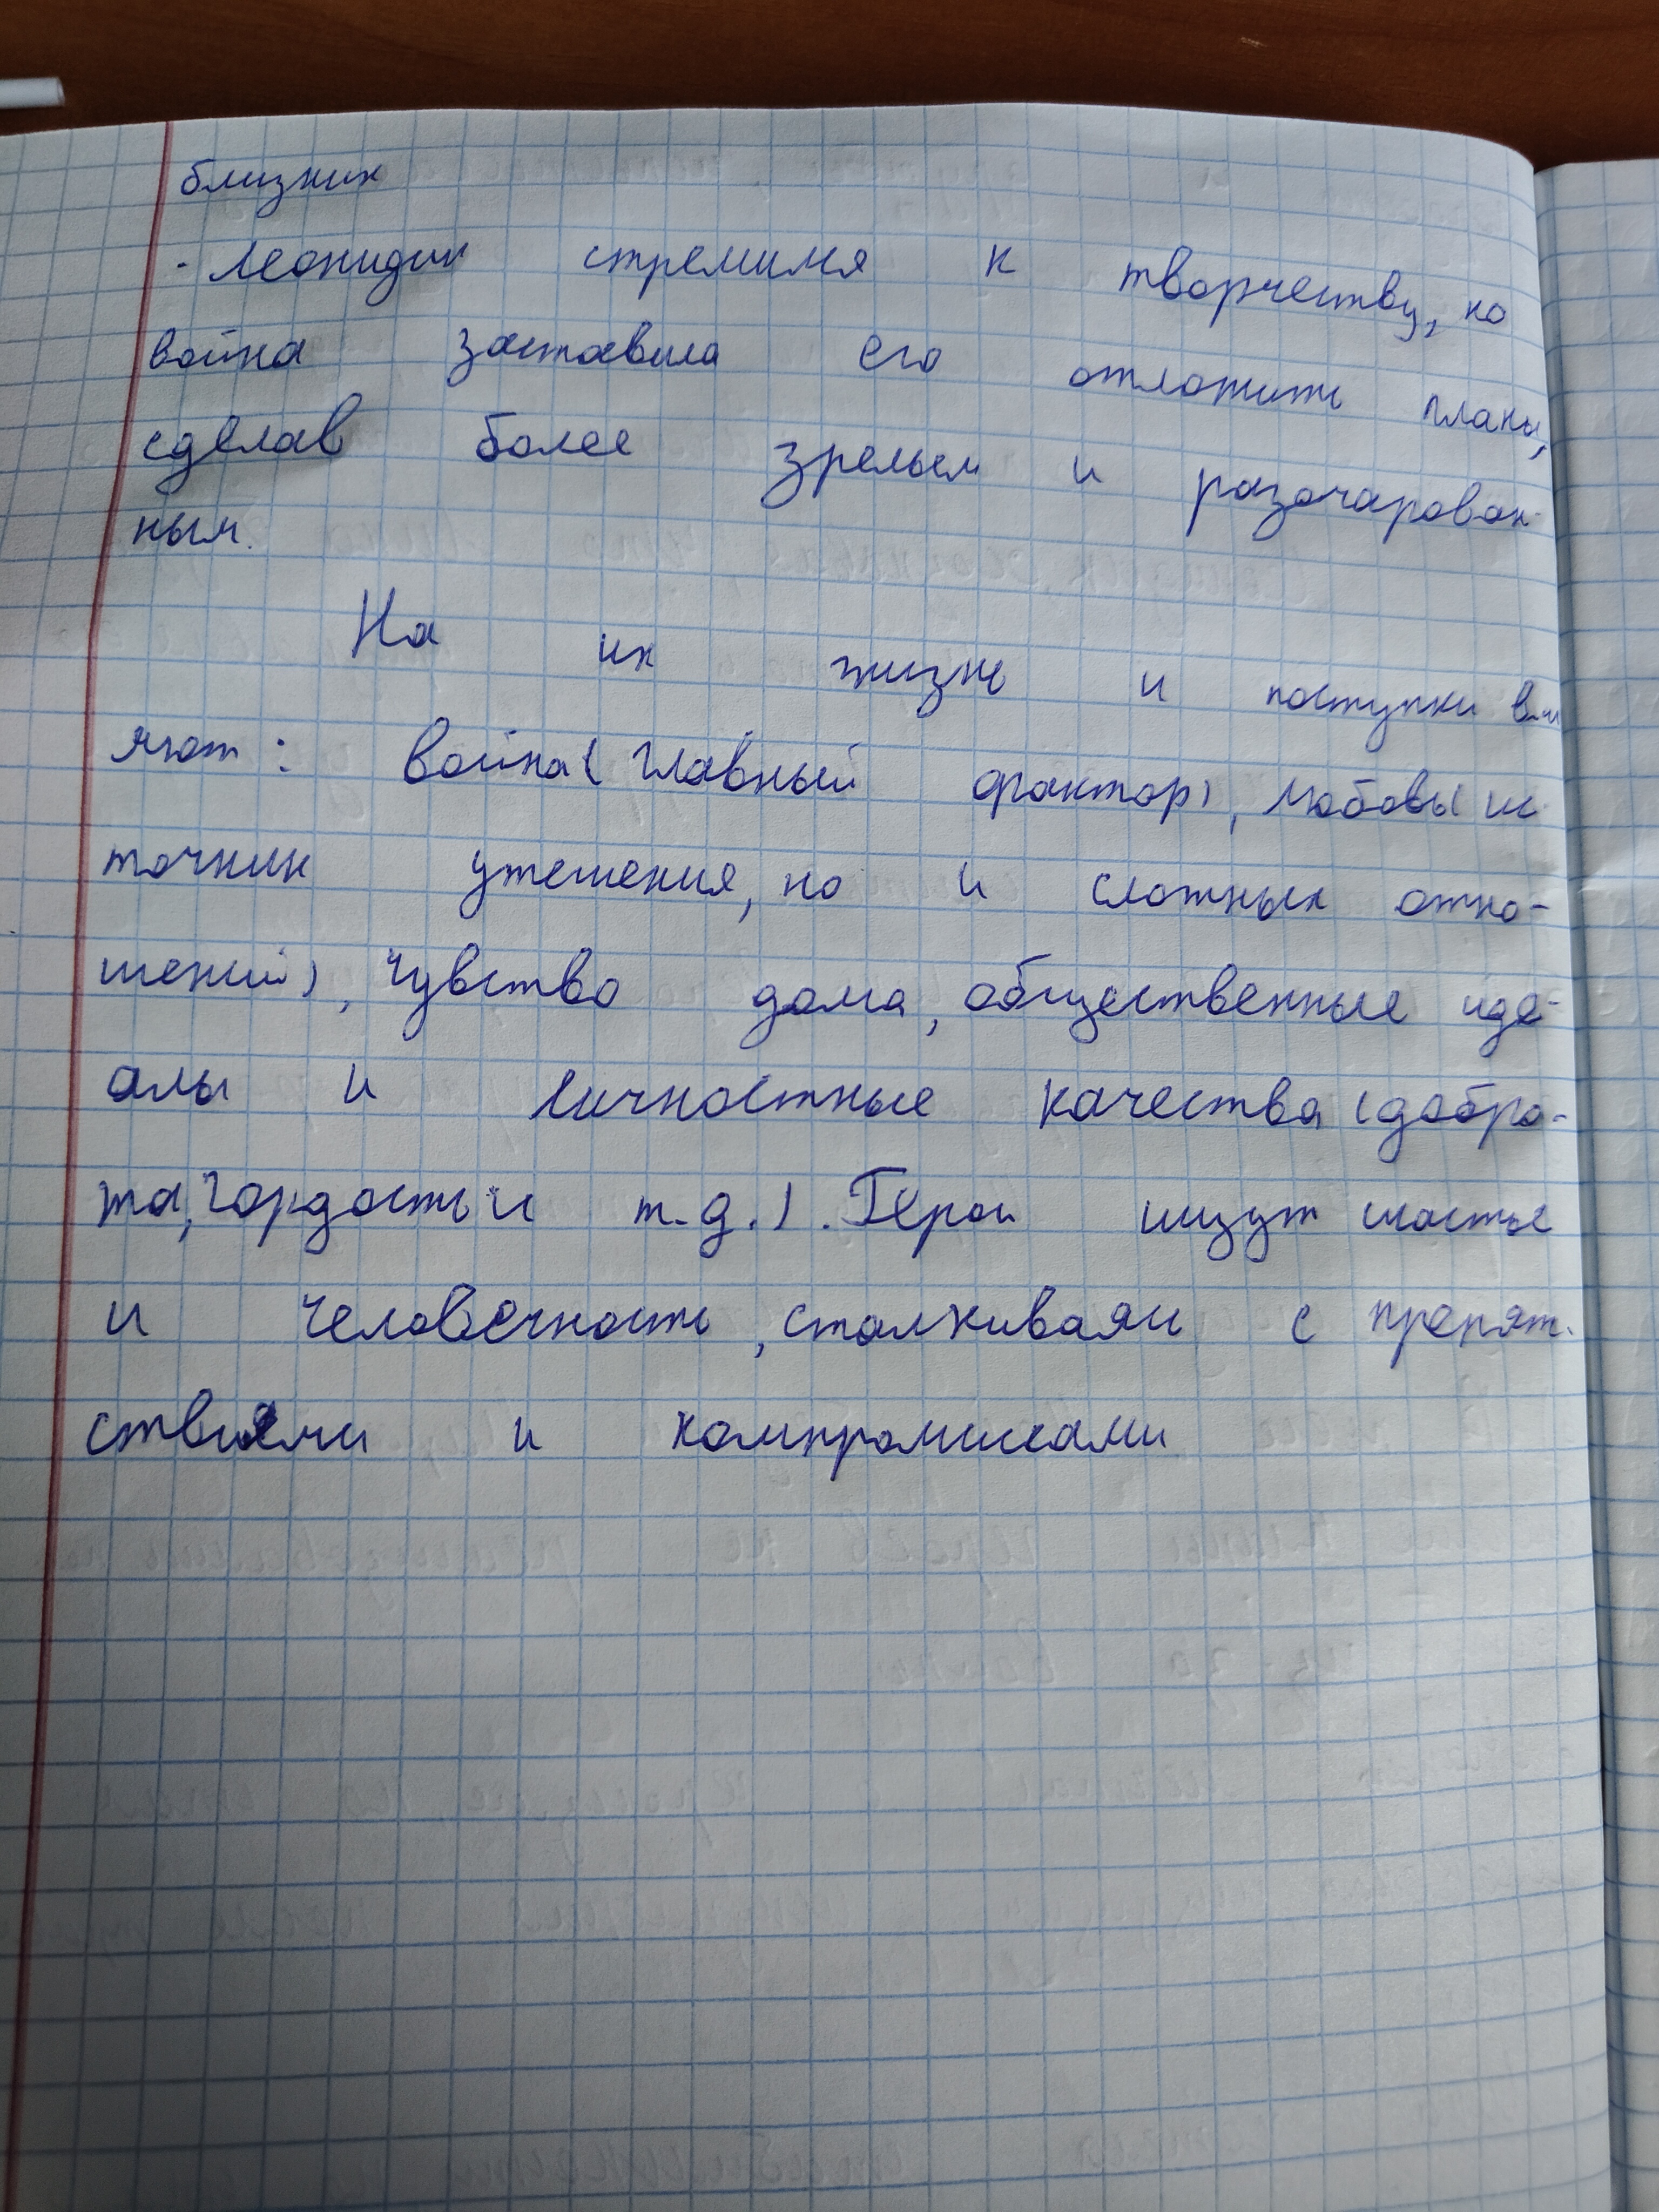 близких
- Леонидик стремился к творчеству, но
война заставила его отложить планы,
сделав более зрелым и разочарован-
ным.
На их жизнь и поступки вли
яют: война (главный фактор), любовь (ис
точник утешения, но и сложных отно-
шений), чувство дома, общественные иде-
алы и личностные качества (добро-
та, гордость и т.д.). Герои ищут счастье
и человечность, сталкиваясь с препят-
ствиями и компромиссами